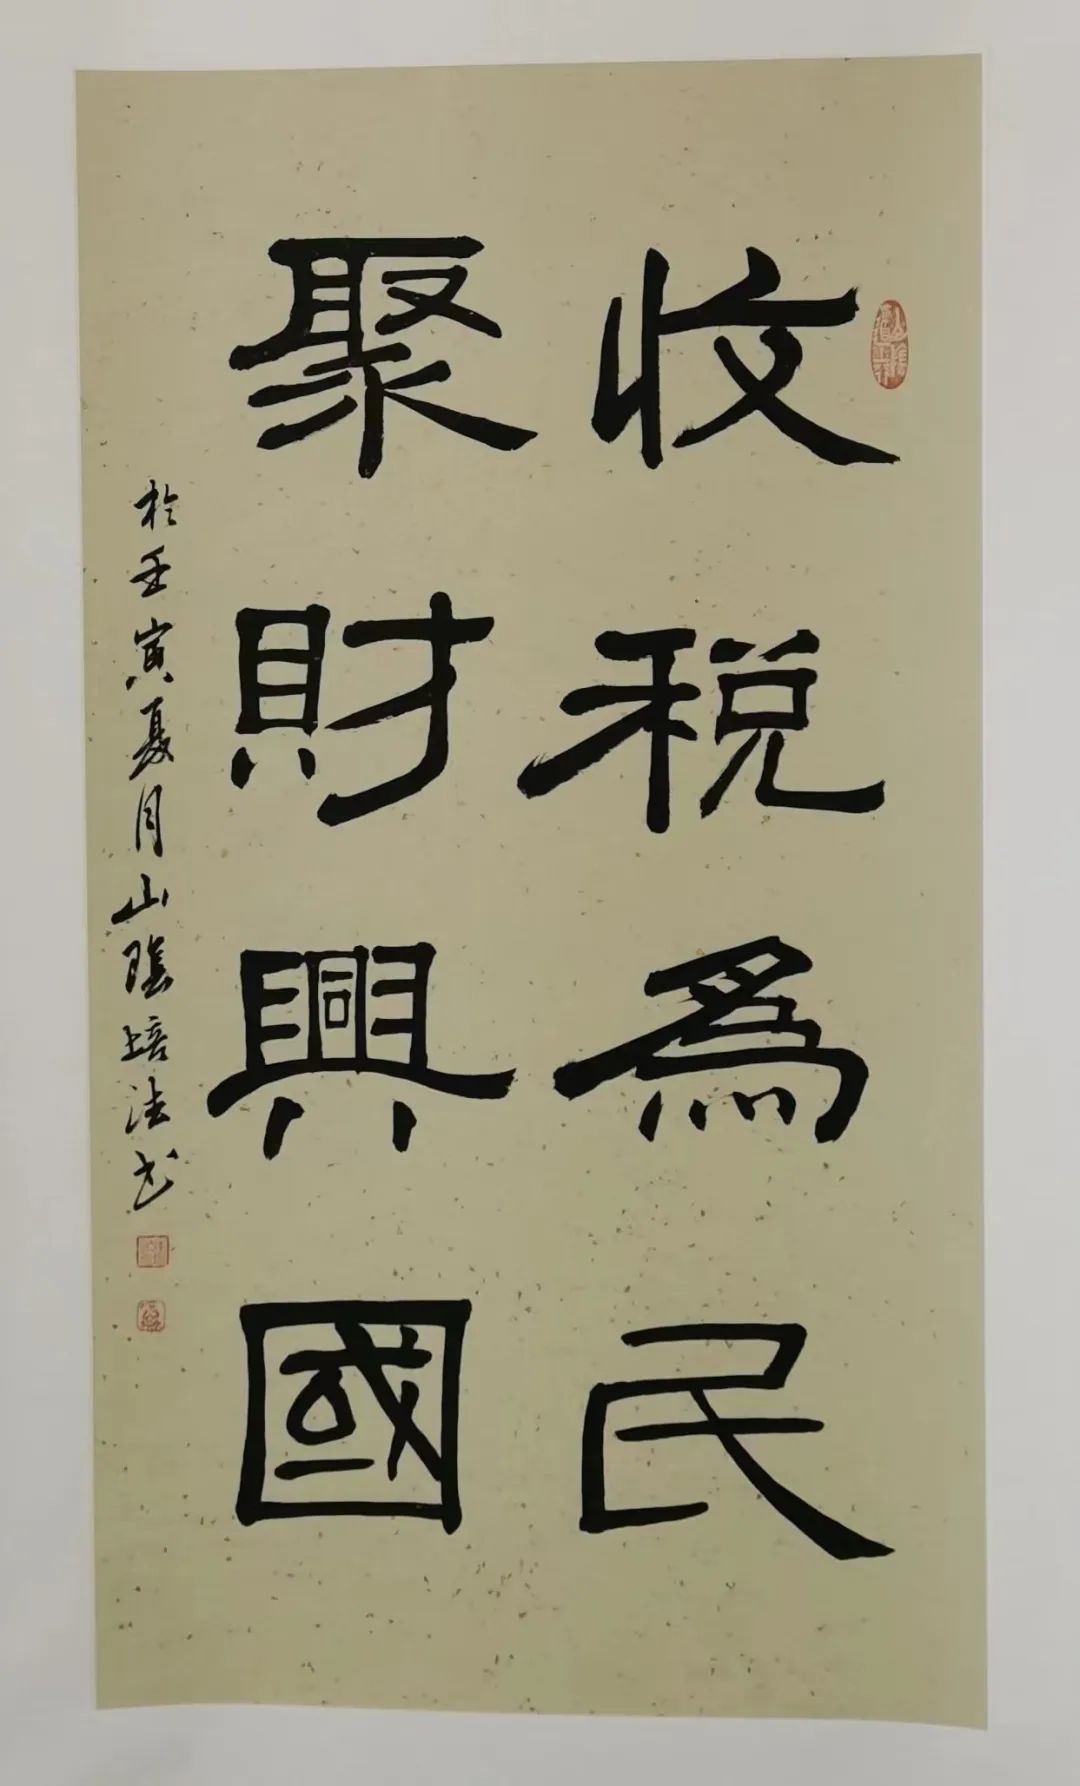 收税爲民
聚財興國
於壬寅夏月山陰培法书